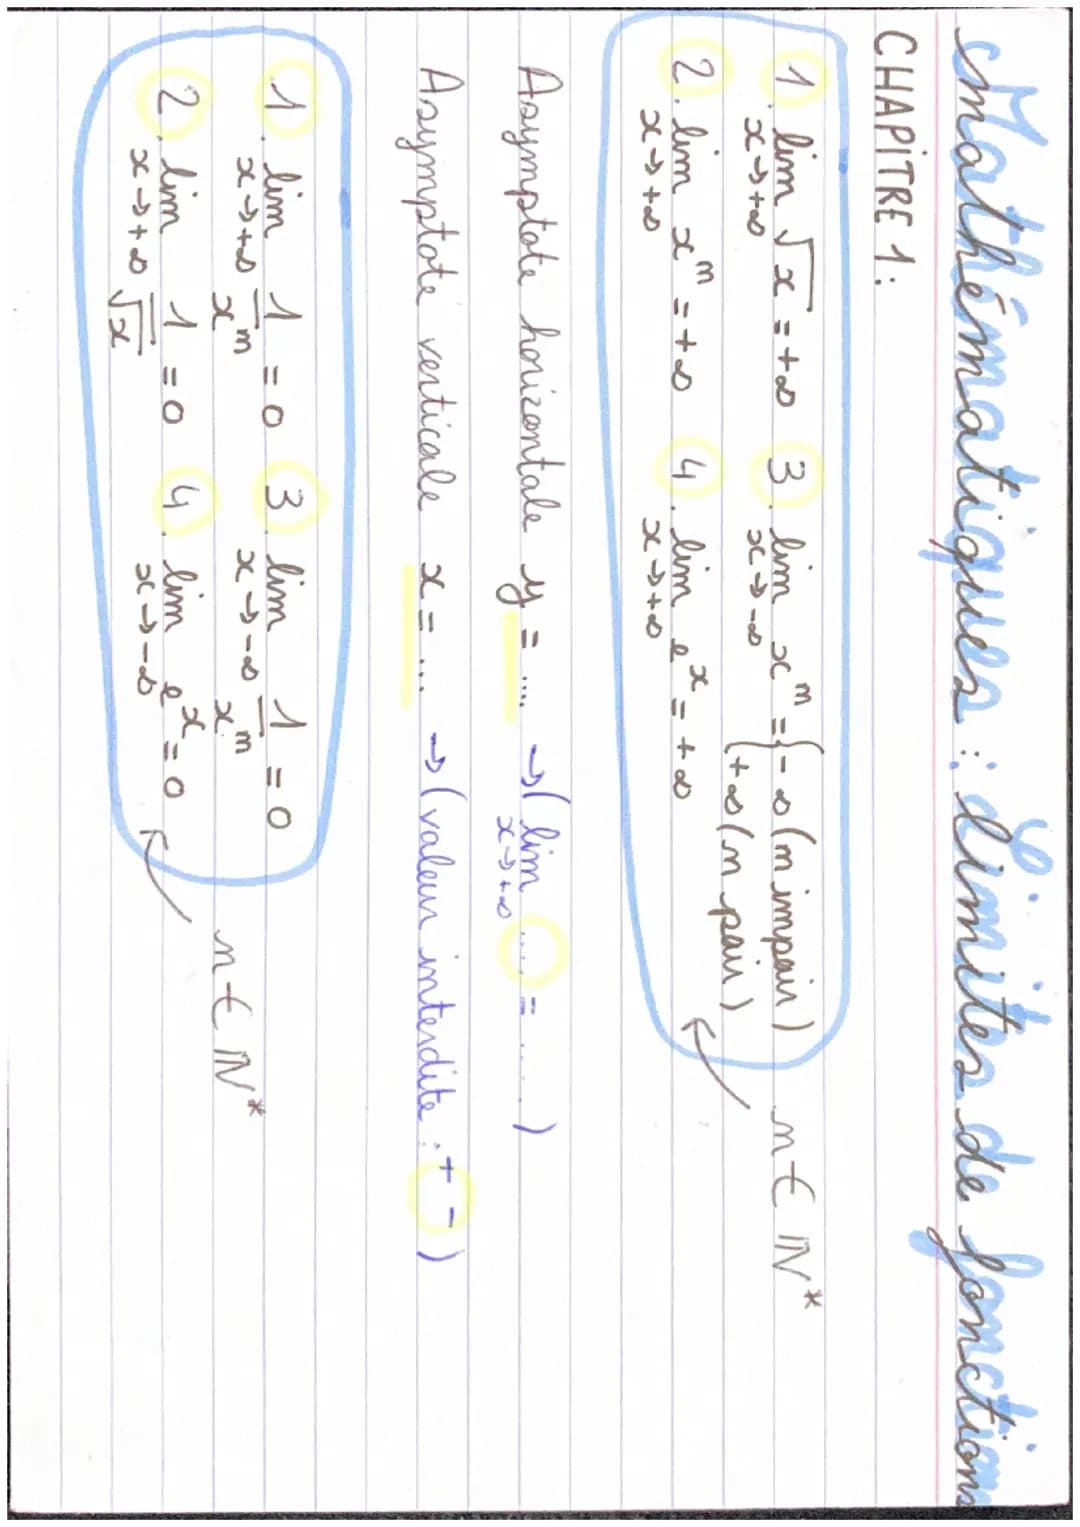 Mathématiques : Limites de fonctions
CHAPITRE 1 :
1. lim x→+∞ √x = +∞ 3. lim x→-∞ xⁿ = { -∞ (n impair) +∞ (n pair) n ∈ ℕ*
2. lim x→+∞ xⁿ = +∞ 4. lim x→+∞ eˣ = +∞
Asymptote horizontale y = ... → ( lim x→+∞ .... = .... )
Asymptote verticale x = ... → (valeur interdite : + - )
1. lim x→+∞ 1/xⁿ = 0 3. lim x→-∞ 1/xⁿ = 0 n ∈ ℕ*
2. lim x→+∞ 1/√x = 0 4. lim x→-∞ eˣ = 0